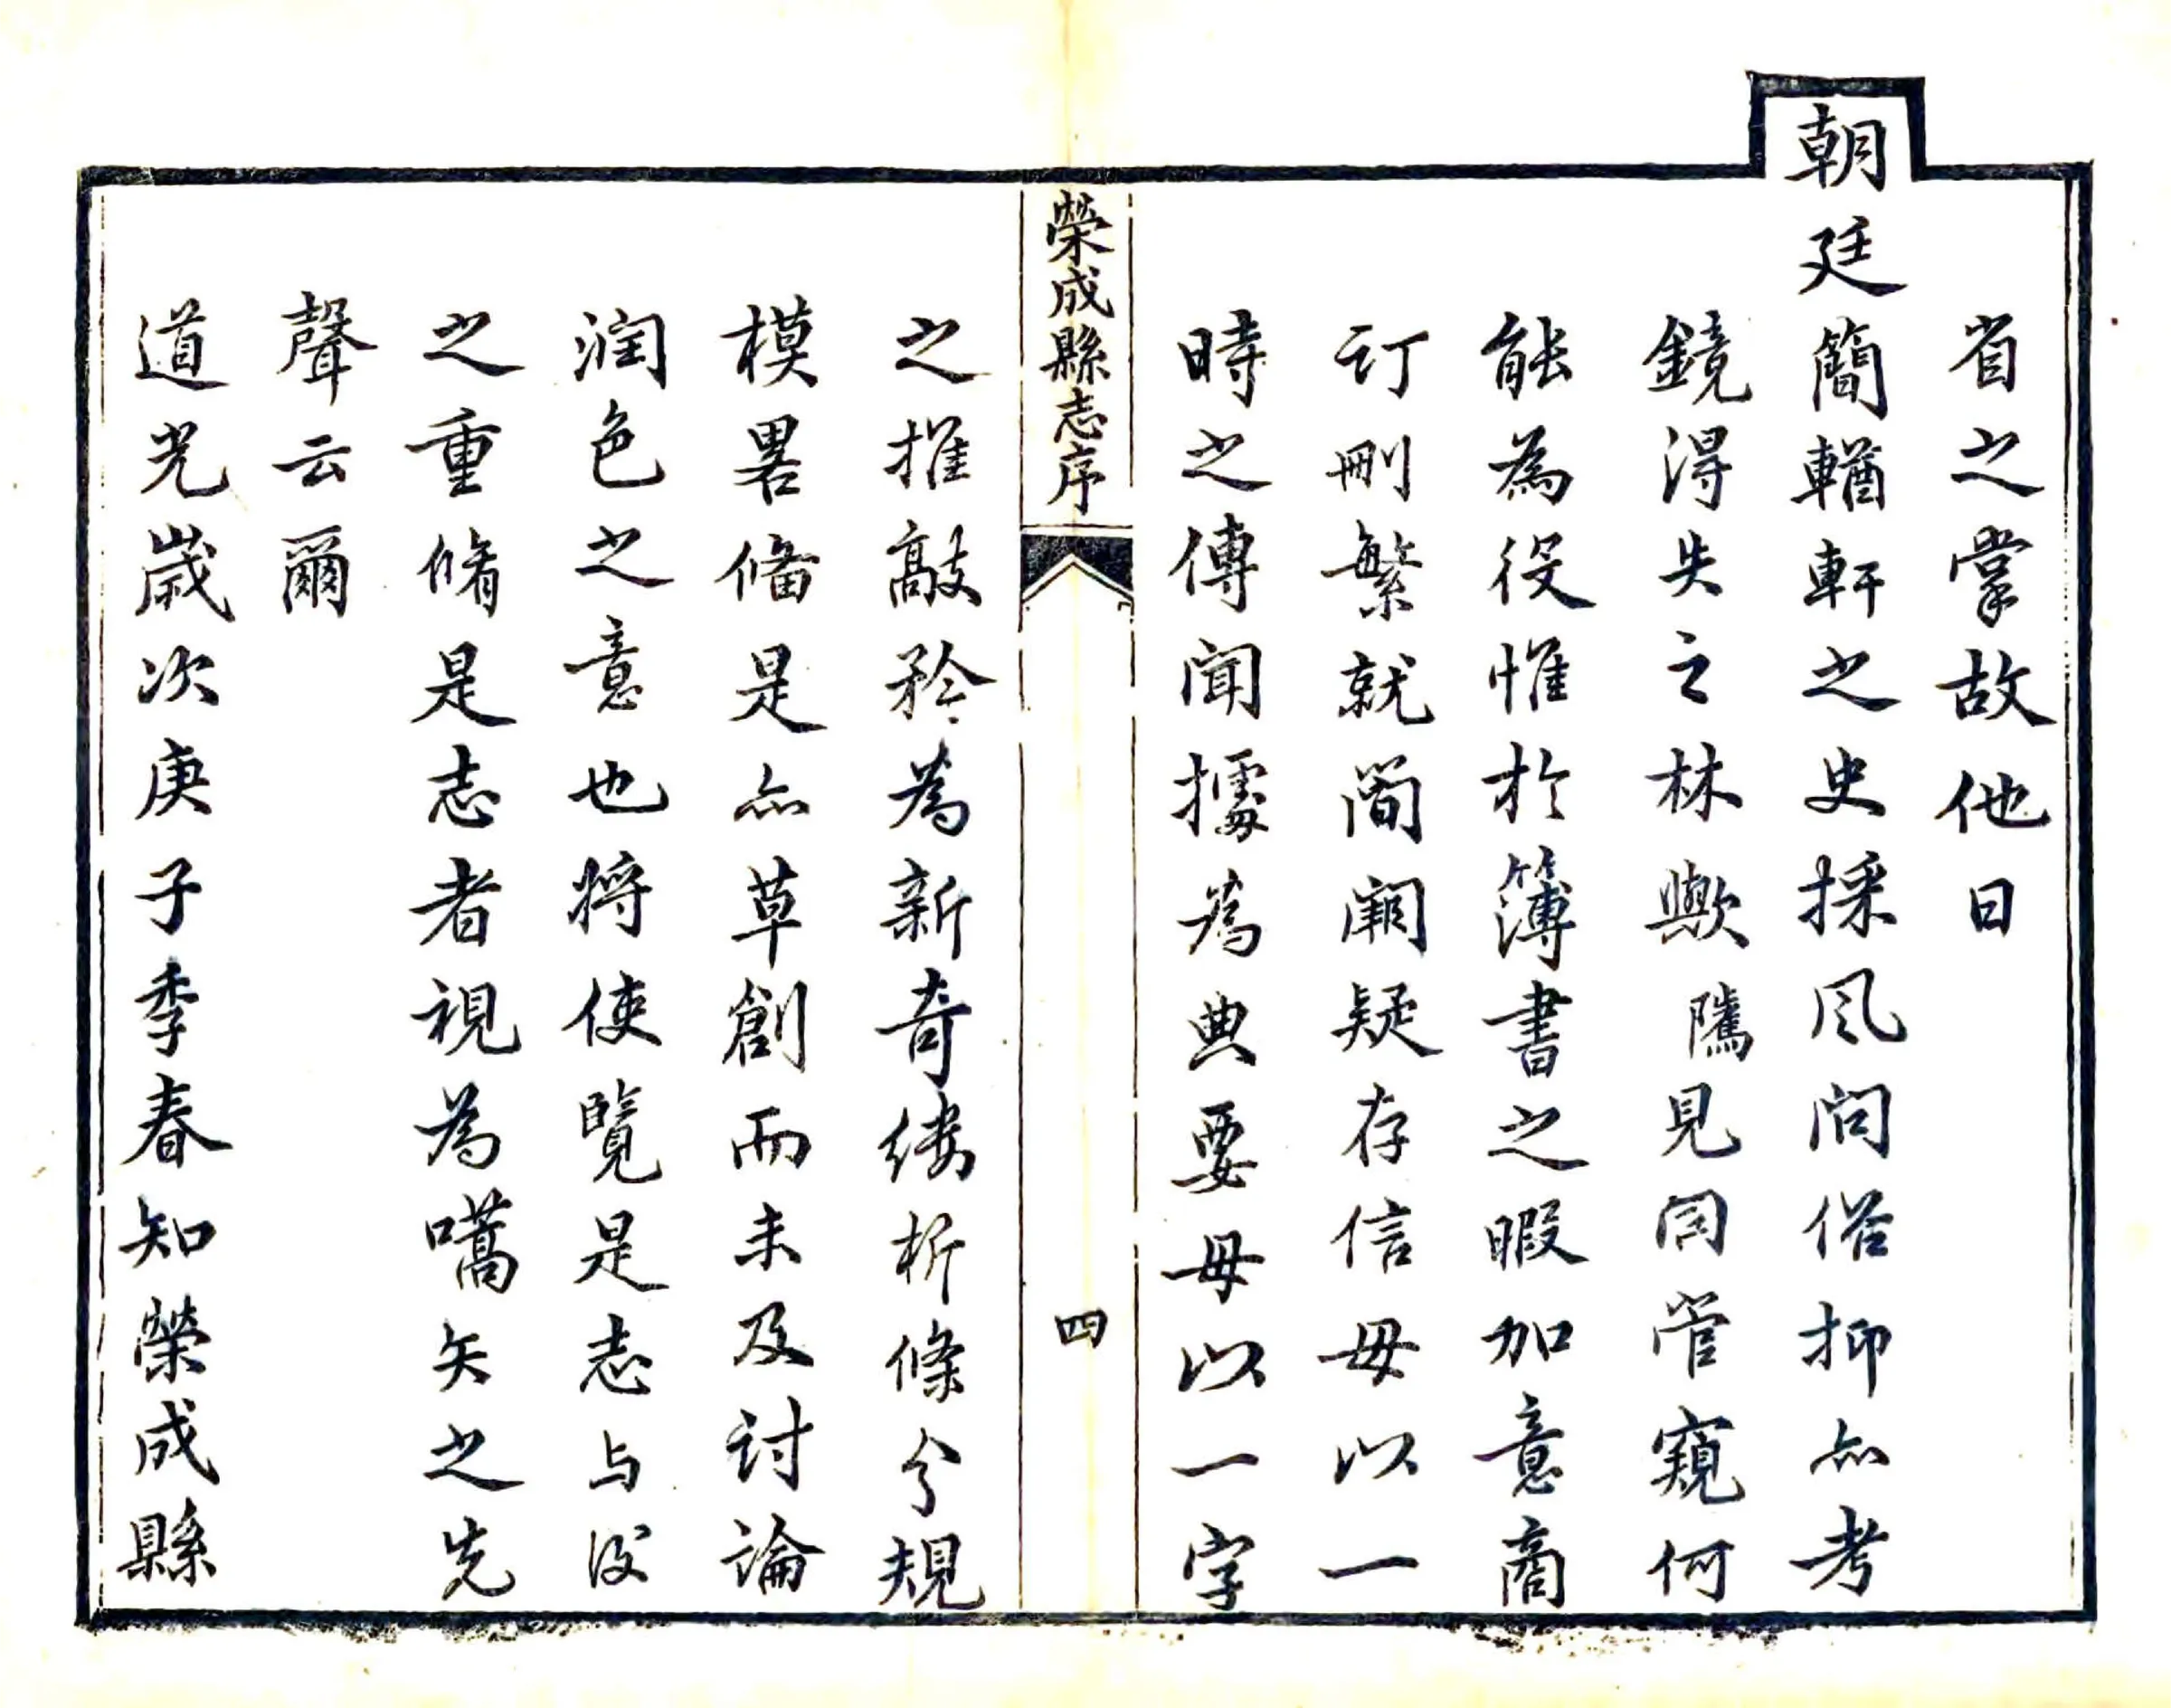 省之掌故他日
朝廷簡輶軒之史採风问俗抑亦考
鏡得失之林歟隲見同管窺何
能為役惟於簿書之暇加意商
订刪繁就简阙疑存信毋以一
時之傳闻據為典要毋以一字
榮成縣志序
四
之推敲矜為新奇缕析條分規
模畧偹是亦草創而未及讨論
润色之意也将使覽是志与後
之重脩是志者視為嚆矢之先
聲云爾
道光歲次庚子季春知榮成縣